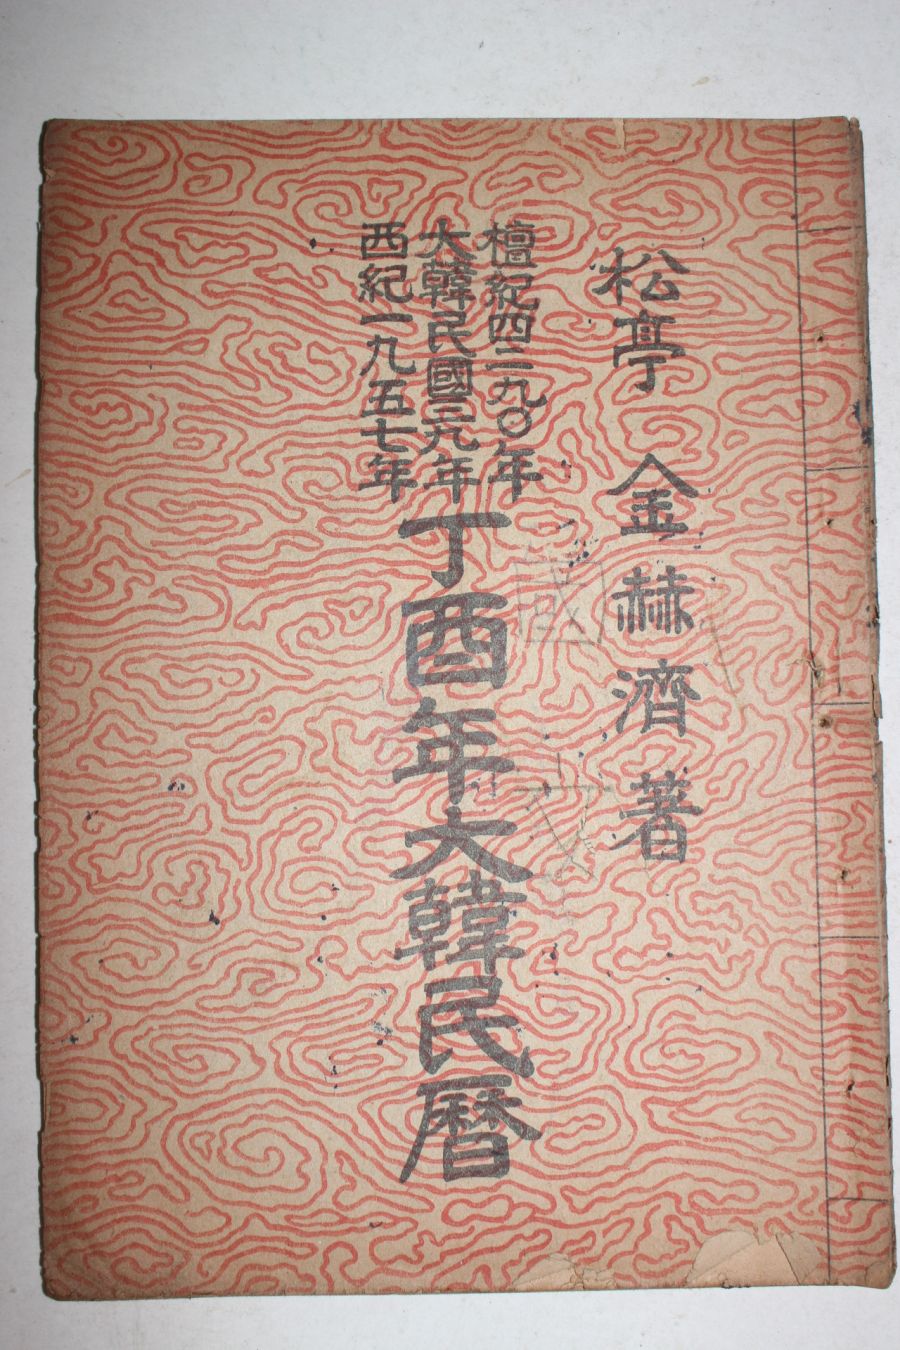 松亭 金赫濟 著
檀紀四二九〇年
大韓民國三九年
西紀一九五七年
丁酉年大韓民曆
國文